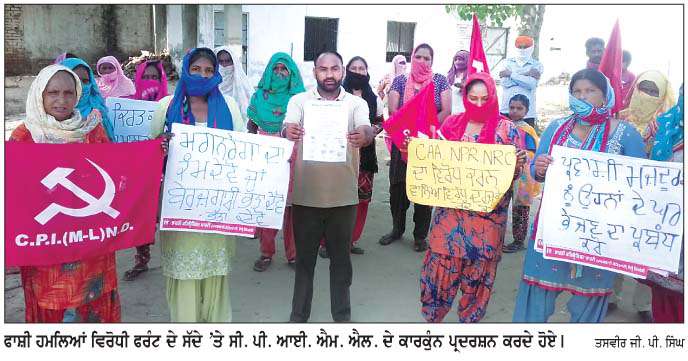 C.P.I.(M-L)N.D.
ਮਗਨਰੇਗਾ ਦਾ
ਕੰਮ ਦੇਵੋ ਜਾਂ
ਬੇਰੁਜ਼ਗਾਰੀ ਭੱਤਾ ਦੇਵੋ
CAA, NPR NRC
ਦਾ ਵਿਰੋਧ ਕਰਨ
ਪ੍ਰਵਾਸੀ ਮਜ਼ਦੂਰਾਂ
ਨੂੰ ਉਹਨਾਂ ਦੇ ਘਰ
ਭੇਜਣ ਦਾ ਪ੍ਰਬੰਧ
ਕਰੋ
ਫਾਸ਼ੀ ਹਮਲਿਆਂ ਵਿਰੋਧੀ ਫਰੰਟ ਦੇ ਸੱਦੇ 'ਤੇ ਸੀ. ਪੀ. ਆਈ. ਐਮ. ਐਲ. ਦੇ ਕਾਰਕੁੰਨ ਪ੍ਰਦਰਸ਼ਨ ਕਰਦੇ ਹੋਏ। ਤਸਵੀਰ ਜੀ. ਪੀ. ਸਿੰਘ